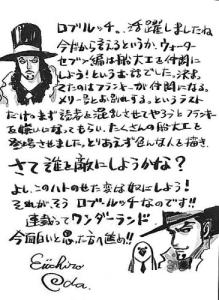 ロブルッチ。活躍しましたね
今だから言えるというか、ウォーター
セブン編は船大工を仲間に
しよう!という話でした。決ま
ってたのはフランキーが仲間になる。
メリー号とお別れする。というラスト
だけ。まず読者を混乱させてやろうとフランキー
を嫌いになってもらい、たくさんの船大工を
登場させました。とりあえず色んな人を描き、
さて誰を敵にしようかな?
よし、このハトのせた変な奴にしよう!
それがそうロブルッチなのです!!
連載ってワンダーランド
今面白いと思った方へ進め!!
Eiichiro
Oda.